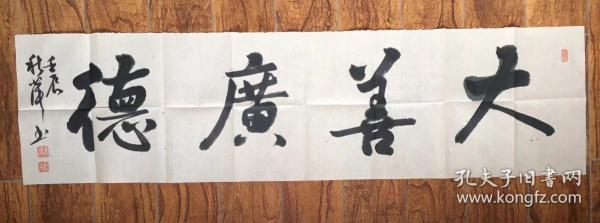 大善廣德
壬辰
秋萍书
孔夫子旧書网
www.kongfz.com